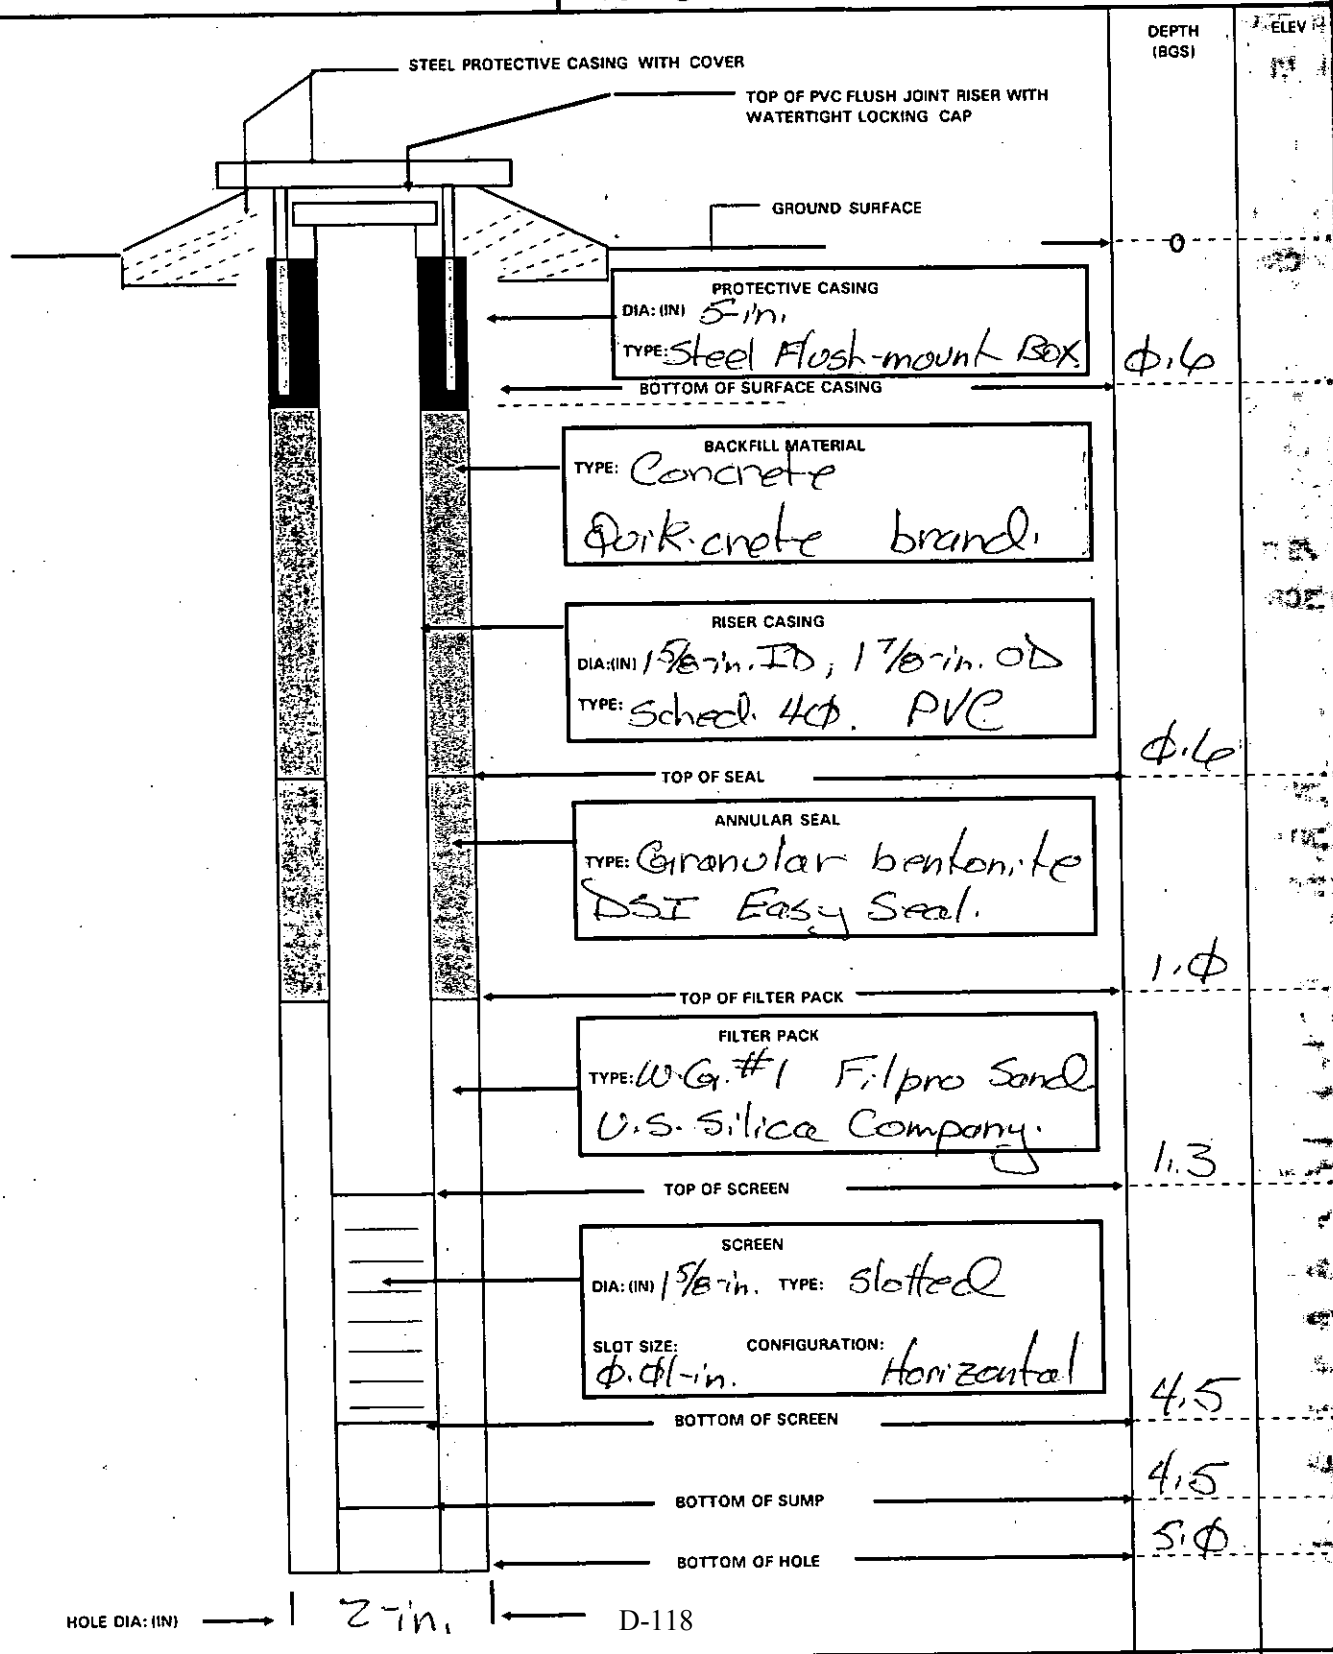 DEPTH
(BGS)
ELEV
STEEL PROTECTIVE CASING WITH COVER
TOP OF PVC FLUSH JOINT RISER WITH
WATERTIGHT LOCKING CAP
GROUND SURFACE
0
PROTECTIVE CASING
DIA: (IN) 5-in.
TYPE: Steel Flush-mount Box.
0.6
BOTTOM OF SURFACE CASING
BACKFILL MATERIAL
TYPE: Concrete
Quik-crete brand.
RISER CASING
DIA:(IN) 1 5/8-in. ID, 1 7/8-in. OD
TYPE: Sched. 40. PVC
0.6
TOP OF SEAL
ANNULAR SEAL
TYPE: Granular bentonite
DSI Easy Seal.
1.0
TOP OF FILTER PACK
FILTER PACK
TYPE: W.G. #1 Filpro Sand
U.S. Silica Company.
1.3
TOP OF SCREEN
SCREEN
DIA: (IN) 1 5/8-in. TYPE: Slotted
SLOT SIZE: CONFIGURATION:
0.01-in. Horizontal
4.5
BOTTOM OF SCREEN
4.5
BOTTOM OF SUMP
5.0
BOTTOM OF HOLE
HOLE DIA: (IN) 2-in. D-118